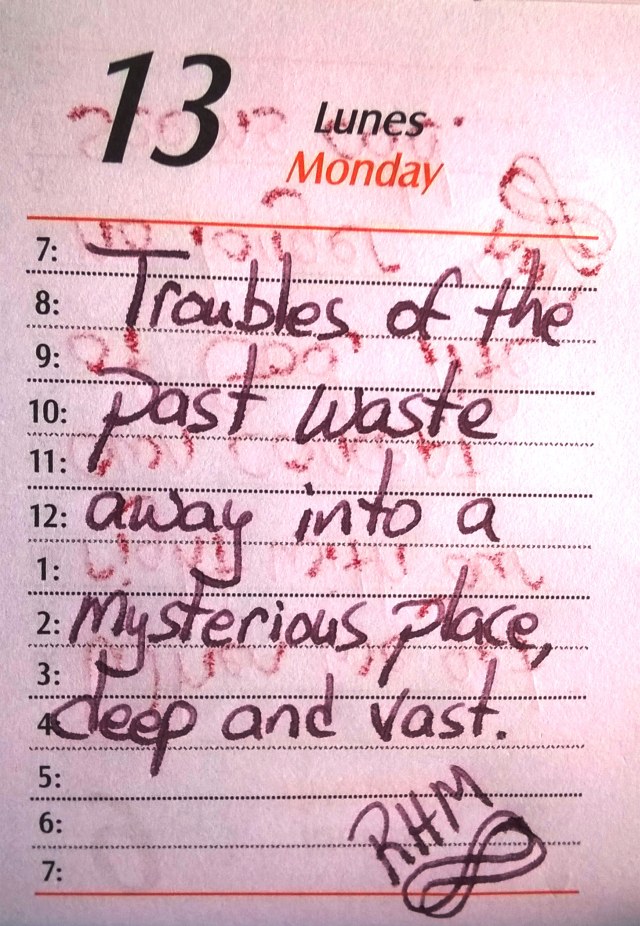 13
Lunes
Monday
7:
8: Troubles of the
9:
10: past waste
11:
12: away into a
1:
2: mysterious place,
3:
4: deep and vast.
5:
6: RHM
7: